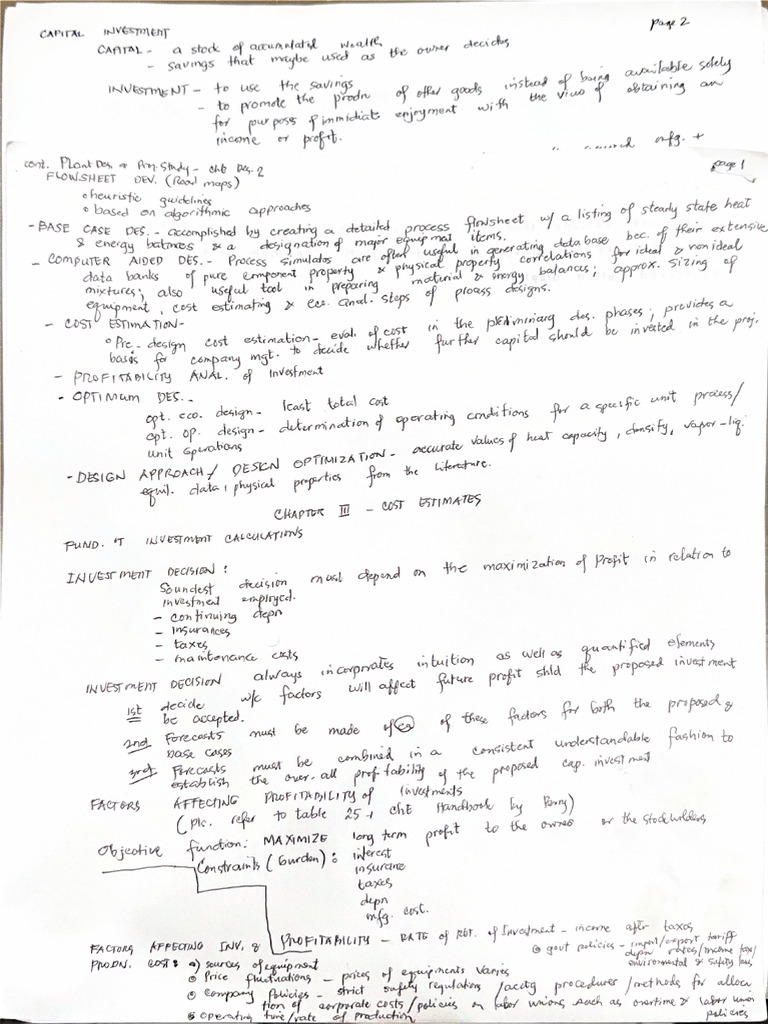 page 2
CAPITAL INVESTMENT
CAPITAL - a stock of accumulated wealth
- savings that maybe used as the owner decides
INVESTMENT - to use the savings
- to promote the prodn of other goods instead of being available solely
for purposes of immidiate enjoyment with the view of obtaining an
income or profit.
mfg. +
page 1
cont. Plant Des. & Proj. Study - ChE Des. 2
FLOWSHEET DEV. (Road maps)
• heuristic guidelines
• based on algorithmic approaches
- BASE CASE DES. - accomplished by creating a detailed process flowsheet w/ a listing of steady state heat
& energy balances & a designation of major equipment items.
- COMPUTER AIDED DES. - Process simulators are often useful in generating database bec. of their extensive
data banks of pure component property & physical property correlations for ideal & non ideal
mixtures; also useful tool in preparing material & energy balances; approx. sizing of
equipment, cost estimating & eco. anal. steps of process designs.
- COST ESTIMATION -
• Pre-design cost estimation - eval. of cost in the preliminary des. phases; provides a
basis for company mgt. to decide whether further capital should be invested in the proj.
- PROFITABILITY ANAL. of Investment
- OPTIMUM DES. -
opt. eco. design - least total cost
opt. op. design - determination of operating conditions for a specific unit process/
unit operations
- DESIGN APPROACH / DESIGN OPTIMIZATION - accurate values of heat capacity, density, vapor-liq.
equil. data, physical properties from the literature.
CHAPTER III - COST ESTIMATES
FUND. OF INVESTMENT CALCULATIONS
INVESTMENT DECISION :
Soundest decision must depend on the maximization of Profit in relation to
investment employed.
- continuing depn
- insurances
- taxes
- maintenance costs
INVESTMENT DECISION always incorporates intuition as well as quantified elements
1st decide w/c factors will affect future profit shld the proposed investment
be accepted.
2nd Forecasts must be made of ea of these factors for both the proposed &
base cases
3rd Forecasts must be combined in a consistent understandable fashion to
establish the over-all profitability of the proposed cap. investment
FACTORS AFFECTING PROFITABILITY of Investments
(Pls. refer to table 25-1 ChE Handbook by Perry)
Objective function: MAXIMIZE long term profit to the owner or the stockholders
Constraints (burden) : interest
insurance
taxes
depn
mfg. cost.
PROFITABILITY - RATE of RET. of Investment - income after taxes
FACTORS AFFECTING INV. &
PRODN. COST : • sources of equipment
• govt policies - import/export tariff
depn rates/income tax/
environmental & safety laws
• Price fluctuations - prices of equipments varies
• Company Policies - strict safety regulations /acctg procedures /methods for alloca
tion of corporate costs/policies on labor unions such as overtime & labor union
policies
• Operating time/rate of production